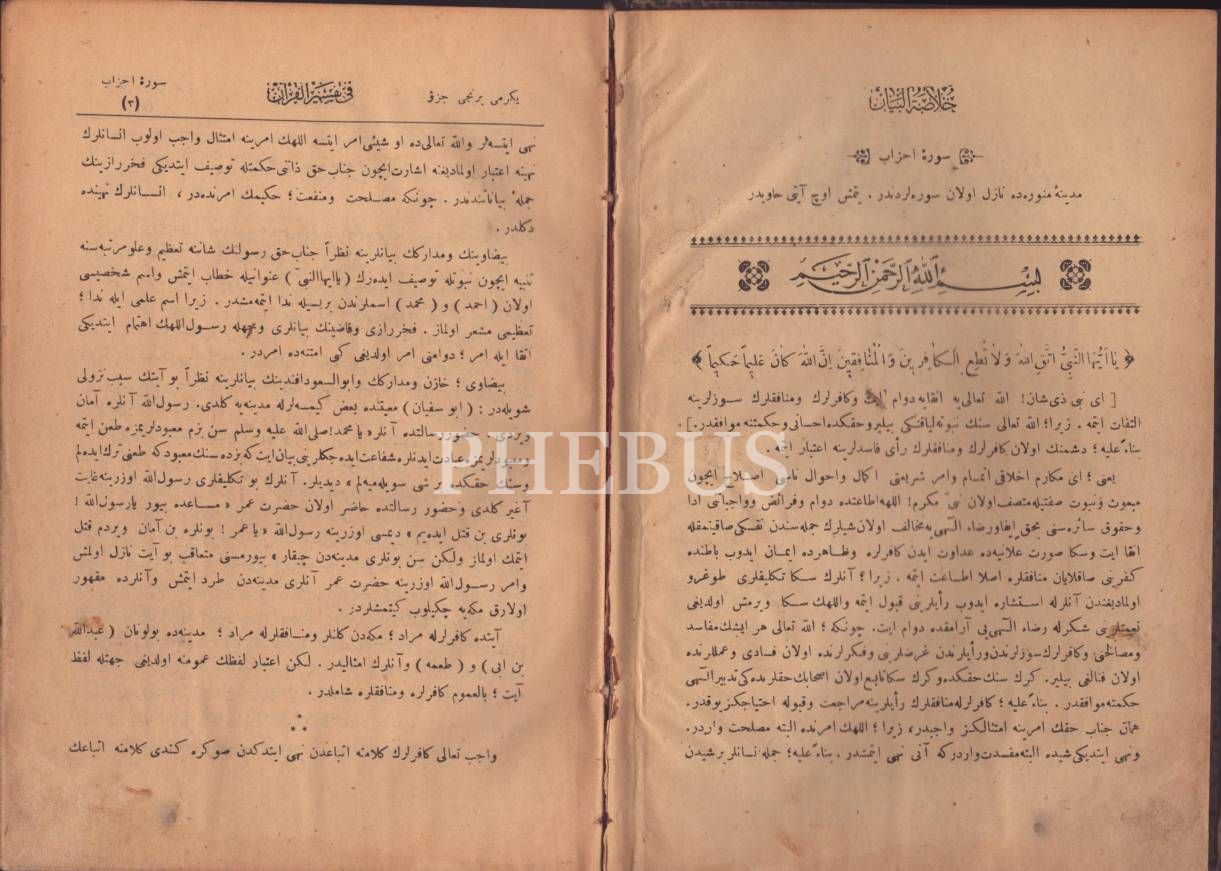 خلاصة البيان
سورۀ احزاب
مدينۀ منوره‌ده نازل اولان سوره‌لردندر . يتمش اوچ آيتى حاويدر
بسم الله الرحمن الرحيم
﴿ يَا اَيُّهَا النَّبِىُّ اتَّقِ اللّٰهَ وَلَا تُطِعِ الْكَافِرِينَ وَالْمُنَافِقِينَ اِنَّ اللّٰهَ كَانَ عَلِيمًا حَكِيمًا ﴾
[ اى نبى ذى شان! الله تعالى‌يه اتقايه دوام ايت وكافرلرك ومنافقلرك سوزلرينه
التفات ايتمه . زيرا؛ الله تعالى سنك نبوته لياقتكى بيلير وحقكده احسانى وحكمتنه موافقدر.]
بناءً عليه ؛ دشمنك اولان كافرلرك ومنافقلرك رأى فاسدلرينه اعتبار ايتمه .
يعنى ؛ اى مكارم اخلاقى اتمام وامر شريعتى اكمال واحوال ناسى اصلاح ايچون
مبعوث ونبوت صفتيله متصف اولان نبىّ مكرم! اللهه اطاعتده دوام وفرائض وواجباتى ادا
وحقوق سائره‌سنى بحق ايفا ورضاء الٓهى‌يه مخالف اولان شيلرك جمله سندن نفسكى صاقينمقله
اتقا ايت وسكا صورت علانيه‌ده عداوت ايدن كافرلره وظاهرده ايمان ايدوب باطنده
كفرينى صاقلايان منافقلره اصلا اطاعت ايتمه . زيرا؟ آنلرك سكا تكليفلرى طوغرو
اولماديغندن آنلرله استشاره ايدوب رأيلرينى قبول ايتمه واللهك سكا ويرمش اولديغى
نعمتلرينى شكرله رضاء الٓهى‌يى آرامقده دوام ايت. چونكه ؛ الله تعالى هر ايشك مفاسد
ومصالحنى وكافرلرك سوزلرندن ورأيلرندن غرضلرينى وفكرلرنده اولان فسادى وعمللرنده
اولان فنالغى بيلير. كرك سنك حقكده وكرك سكا تابع اولان اصحابك حقلرنده‌كى تدبير الٓهى
حكمته موافقدر . بناءً عليه ؛ كافرلرله منافقلرك رأيلرينه مراجعت وقبوله احتياجكز يوقدر.
همان جناب حقك امرينه امتثالكز واجبدر، زيرا ؛ اللهك امرنده البته مصلحت واردر.
ونهى ايتديكى شيده البته مفسدت واردركه آنى نهى ايتمشدر . بناءً عليه؛ جمله انسانلر برشيدن
يكرمى برنجى جزؤ
فى تفسير القرآن
سورۀ احزاب
(٣)
نهى ايتسه‌لر والله تعالى‌ده او شيئى امر ايتسه اللهك امرينه امتثال واجب اولوب انسانلرك
نهينه اعتبار اولماديغنه اشارت ايچون جناب حق ذاتنى حكمتله توصيف ايتديكى فخررازينك
جملۀ بياناتندندر . چونكه مصلحت ومنفعت ؛ حكيمك امرنده‌در ، انسانلرك نهينده
دكلدر .
بيضاوينك ومداركك بيانلرينه نظراً جناب حق رسولنك شاننه تعظيم وعلو مرتبه‌سنه
تنبيه ايچون نبوتله توصيف ايده‌رك ( ياايهاالنبىّ ) عنوانيله خطاب ايتمش واسم شخصيسى
اولان ( احمد ) و ( محمد ) اسملرندن بريسيله ندا ايتمه‌مشدر . زيرا اسم علمى ايله ندا ؛
تعظيمى مشعر اولماز . فخررازى وقاضينك بيانلرى وجهله رسول‌اللهك اهتمام ايتديكى
اتقا ايله امر ؛ دوامنى امر اولديغى كبى امتنه‌ده امردر .
بيضاوى ؛ خازن ومداركك وابوالسعود افندينك بيانلرينه نظراً بو آيتك سبب نزولى
شويله‌در : ( ابو سفيان ) معيتنده بعض كيمسه‌لرله مدينه‌يه كلدى. رسول‌الله آنلره آمان
ويردى . حضور رسالتده آنلر « يا محمد! صلى الله عليه وسلم سن بزم معبودلريمزه طعن ايتمه
ومعبودلريمزه عبادت ايدنلره شفاعت ايده‌جكلرينى بيان ايت كه بزده سنك معبودكه طعنى ترك ايده‌لم
وسنك حقكده برشى سويله‌ميه‌لم » ديديلر. آنلرك بو تكليفلرى رسول‌الله اوزرينه غايت
آغير كلدى وحضور رسالتده حاضر اولان حضرت عمر « مساعده بيور يارسول‌الله !
بونلرى بن قتل ايده‌يم » ديمسى اوزرينه رسول‌الله « ياعمر! بونلره بن آمان ويردم قتل
ايتمك اولماز ولكن سن بونلرى مدينه‌دن چيقار » بيورمسنى متعاقب بو آيت نازل اولمش
وامر رسول‌الله اوزرينه حضرت عمر آنلرى مدينه‌دن طرد ايتمش وآنلرده مقهور
اولارق مكه‌يه چكيلوب كيتمشلردر .
آيتده كافرلرله مراد؛ مكه‌دن كلنلر ومنافقلرله مراد ؛ مدينه‌ده بولونان ( عبدالله
بن ابى ) و ( طعمه ) وآنلرك امثاليدر . لكن اعتبار لفظك عمومنه اولديغى جهتله لفظ
آيت ؛ بالعموم كافرلره ومنافقلره شاملدر .
واجب تعالى كافرلرك كلامنه اتباعدن نهى ايتدكدن صوكره كندى كلامنه اتباعك
PHEBUS